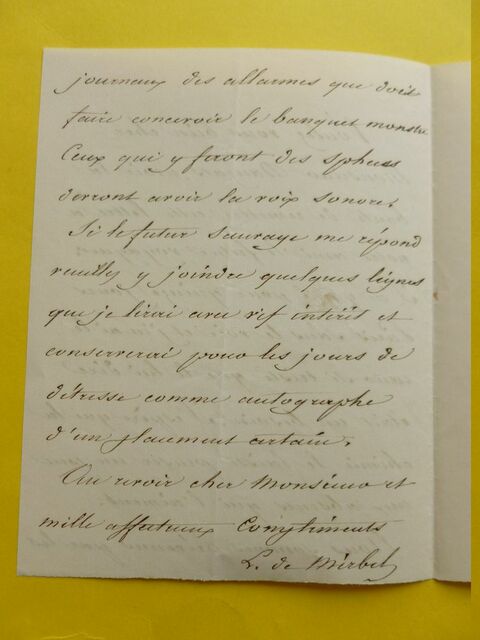 journaux des allarmes que doit
faire concevoir le banquet monstre
Ceux qui y feront des spheecs
devront avoir la voix sonore.
Si le futur sauvage me répond
veuillez y joindre quelques lignes
que je lirai avec vif intérêt et
conserverai pour les jours de
détresse comme autographe
d'un placement certain.
Au revoir cher Monsieur et
mille affectueux Compliments
L. de Mirbel